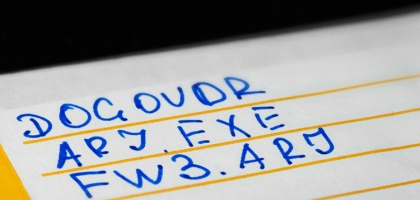 DOGOVOR
ARJ.EXE
FW3.ARJ